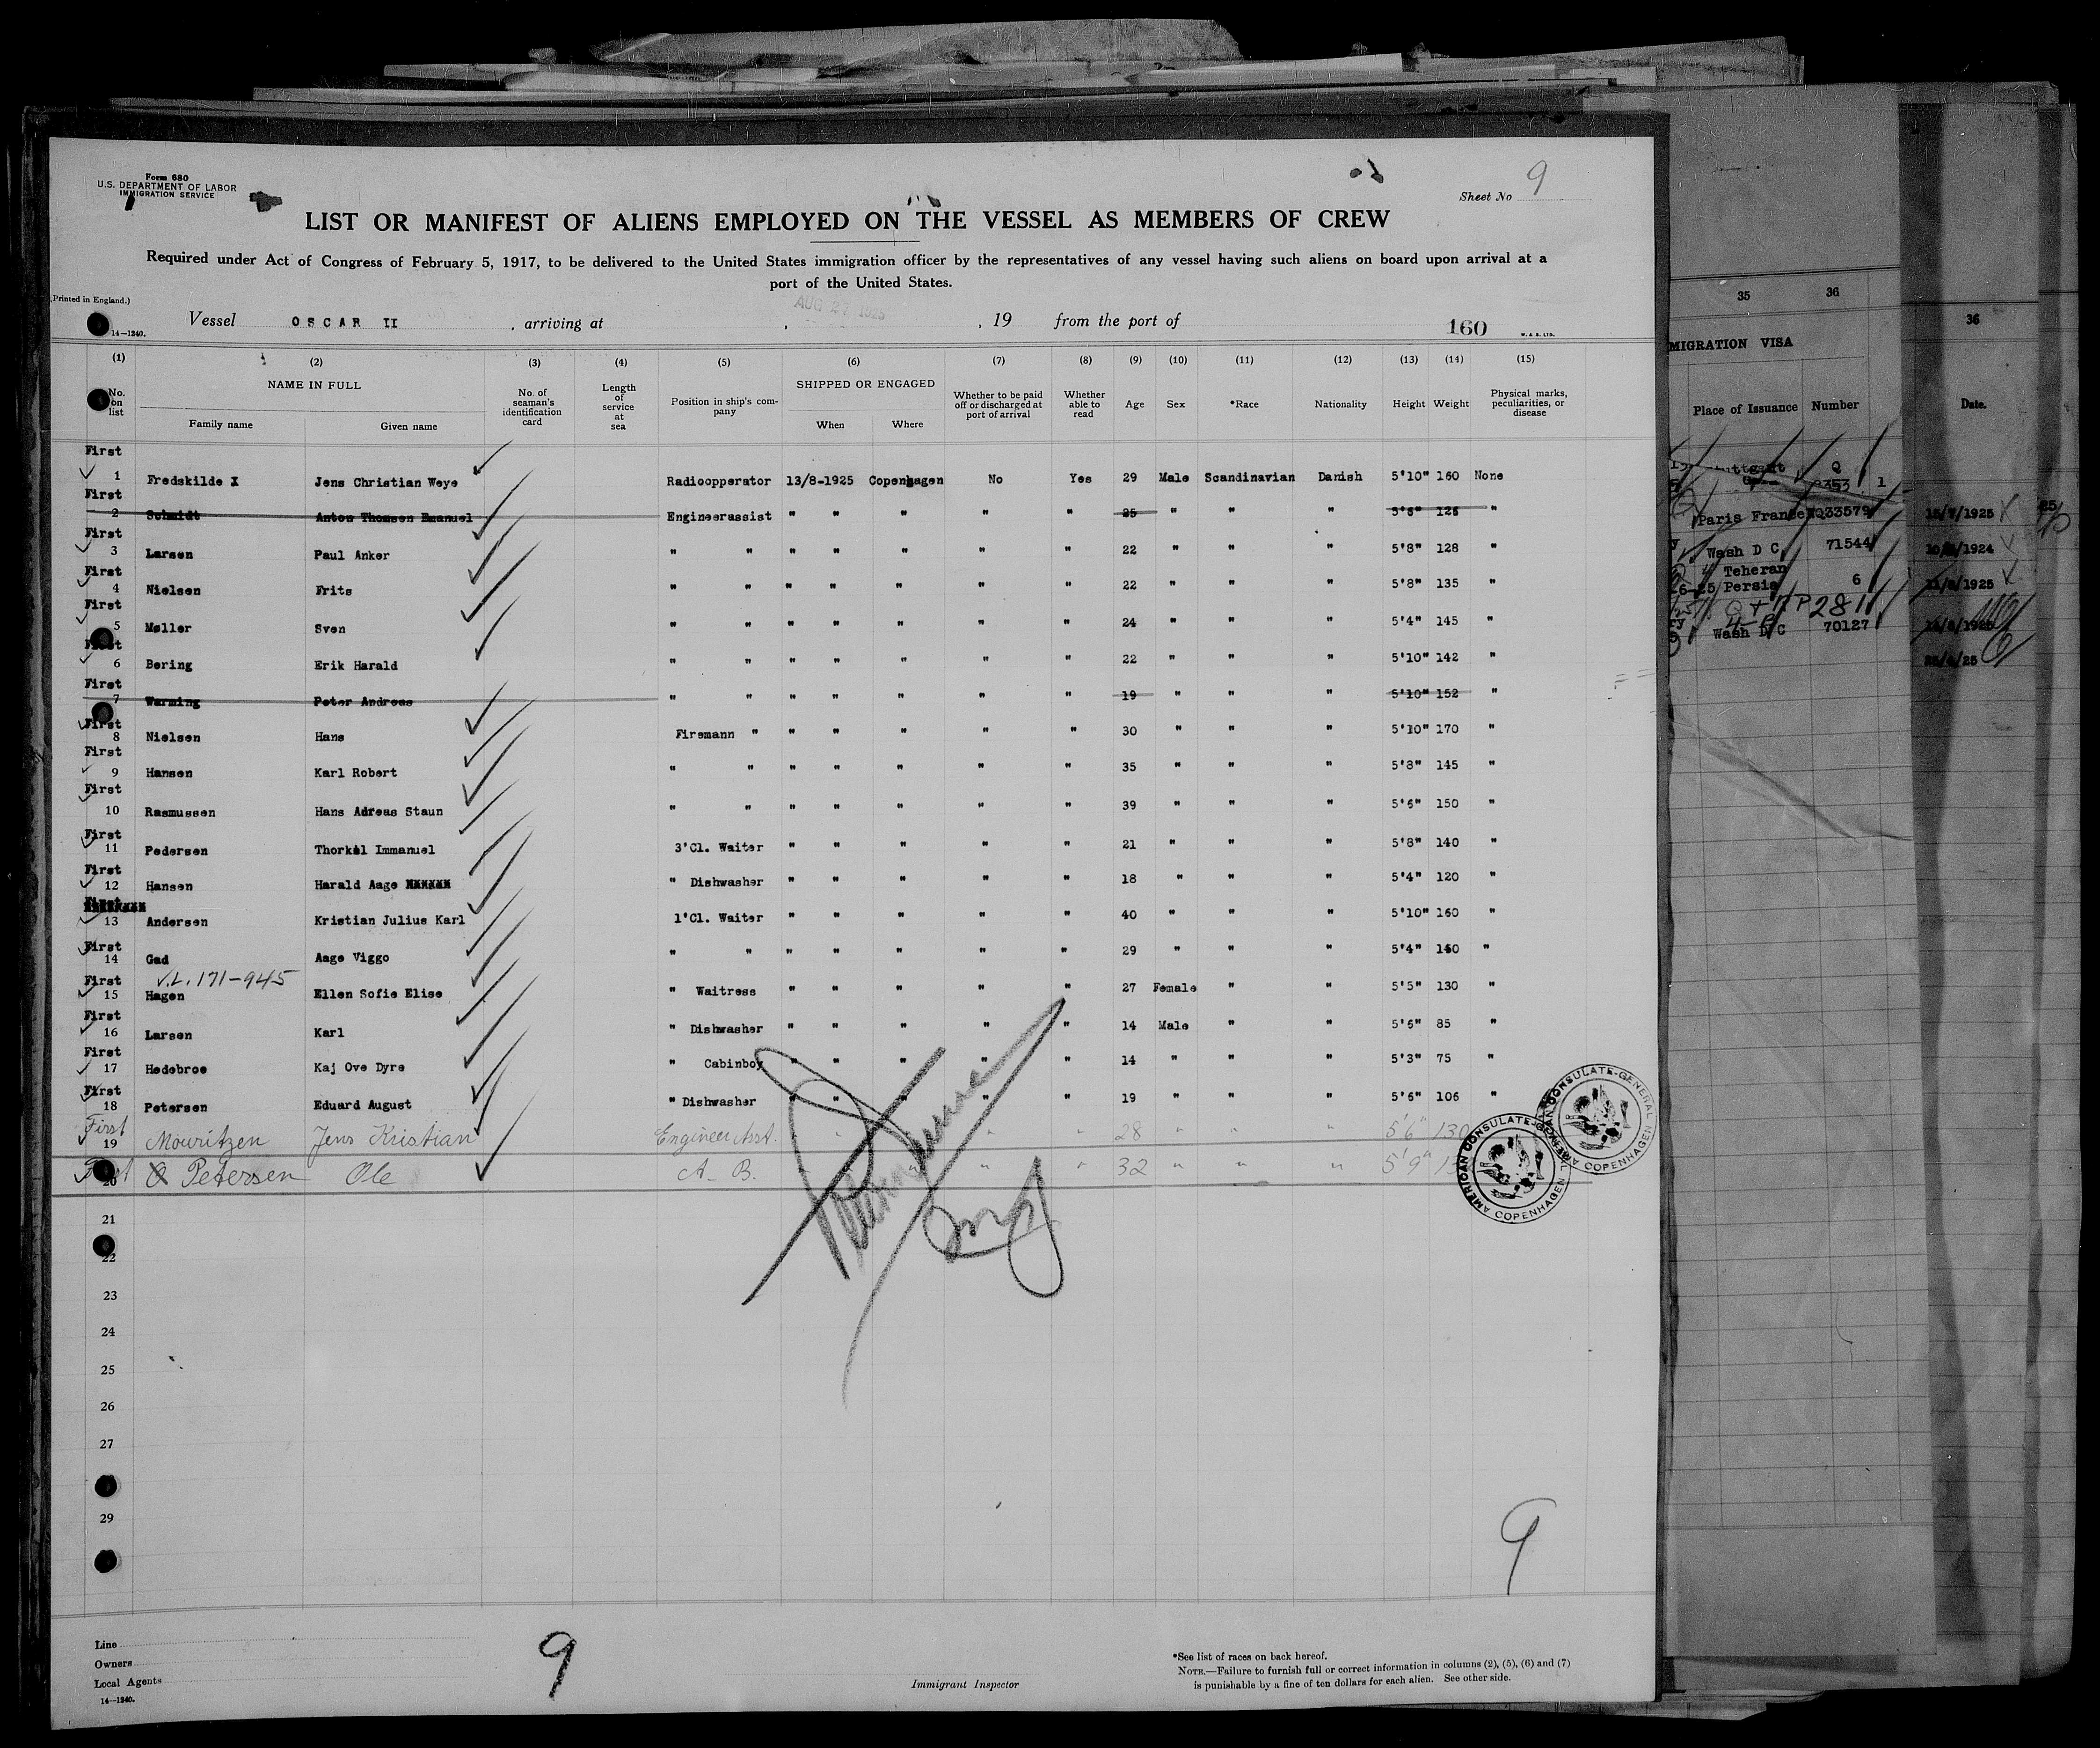 Form 680
U.S. DEPARTMENT OF LABOR
IMMIGRATION SERVICE
Sheet No 9
LIST OR MANIFEST OF ALIENS EMPLOYED ON THE VESSEL AS MEMBERS OF CREW
Required under Act of Congress of February 5, 1917, to be delivered to the United States immigration officer by the representatives of any vessel having such aliens on board upon arrival at a
port of the United States.
(Printed in England.)
AUG 27 1925
14—1240. Vessel OSCAR II , arriving at , , 19 from the port of 160 W. & S. LTD.
(1) (2) (3) (4) (5) (6) (7) (8) (9) (10) (11) (12) (13) (14) (15)
No. on list NAME IN FULL Family name Given name No. of seaman's identification card Length of service at sea Position in ship's company SHIPPED OR ENGAGED When Where Whether to be paid off or discharged at port of arrival Whether able to read Age Sex *Race Nationality Height Weight Physical marks, peculiarities, or disease
First
1 Fredskilde X Jens Christian Weye Radioopperator 13/8-1925 Copenhagen No Yes 29 Male Scandinavian Danish 5'10" 160 None
First
2 Schmidt Anton Thomsen Emanuel Engineerassist " " " " " 25 " " " 5'6" 126 "
First
3 Larsen Paul Anker " " " " " " " 22 " " " 5'8" 128 "
First
4 Nielsen Frits " " " " " " " 22 " " " 5'8" 135 "
First
5 Møller Sven " " " " " " " 24 " " " 5'4" 145 "
First
6 Bering Erik Harald " " " " " " " 22 " " " 5'10" 142 "
First
7 Warming Peter Andreas " " " " " " " 19 " " " 5'10" 152 "
First
8 Nielsen Hans Firemann " " " " " " 30 " " " 5'10" 170 "
First
9 Hansen Karl Robert " " " " " " " 35 " " " 5'8" 145 "
First
10 Rasmussen Hans Adreas Staun " " " " " " " 39 " " " 5'6" 150 "
First
11 Pedersen Thorkil Immanuel 3'Cl. Waiter " " " " " 21 " " " 5'8" 140 "
First
12 Hansen Harald Aage " Dishwasher " " " " " 18 " " " 5'4" 120 "
First
13 Andersen Kristian Julius Karl 1'Cl. Waiter " " " " " 40 " " " 5'10" 160 "
First
14 Gad Aage Viggo " " " " " " " 29 " " " 5'4" 150 "
First V.L. 171-945
15 Hagen Ellen Sofie Elise " Waitress " " " " " 27 Female " " 5'5" 130 "
First
16 Larsen Karl " Dishwasher " " " " " 14 Male " " 5'6" 85 "
First
17 Hedebroe Kaj Ove Dyre " Cabinboy " " " " " 14 " " " 5'3" 75 "
First
18 Petersen Eduard August " Dishwasher " " " " " 19 " " " 5'6" 106 "
First
19 Mouritzen Jens Kristian Engineer Asst. " " " " 28 " " " 5'6" 130
First
20 Petersen Ole A. B. " " " 32 " " " 5'9"
AMERICAN CONSULATE-GENERAL COPENHAGEN
AMERICAN CONSULATE-GENERAL COPENHAGEN
21
22
23
24
25
26
27
29
9
Line
Owners
Local Agents
14—1240.
9
Immigrant Inspector
*See list of races on back hereof.
NOTE.—Failure to furnish full or correct information in columns (2), (5), (6) and (7)
is punishable by a fine of ten dollars for each alien. See other side.
35 36
MIGRATION VISA
Place of Issuance Number
Paris France 33579
Wash D C 71544
Teheran
Persia 6
Wash D C 70127
36
Date.
15/7/1925